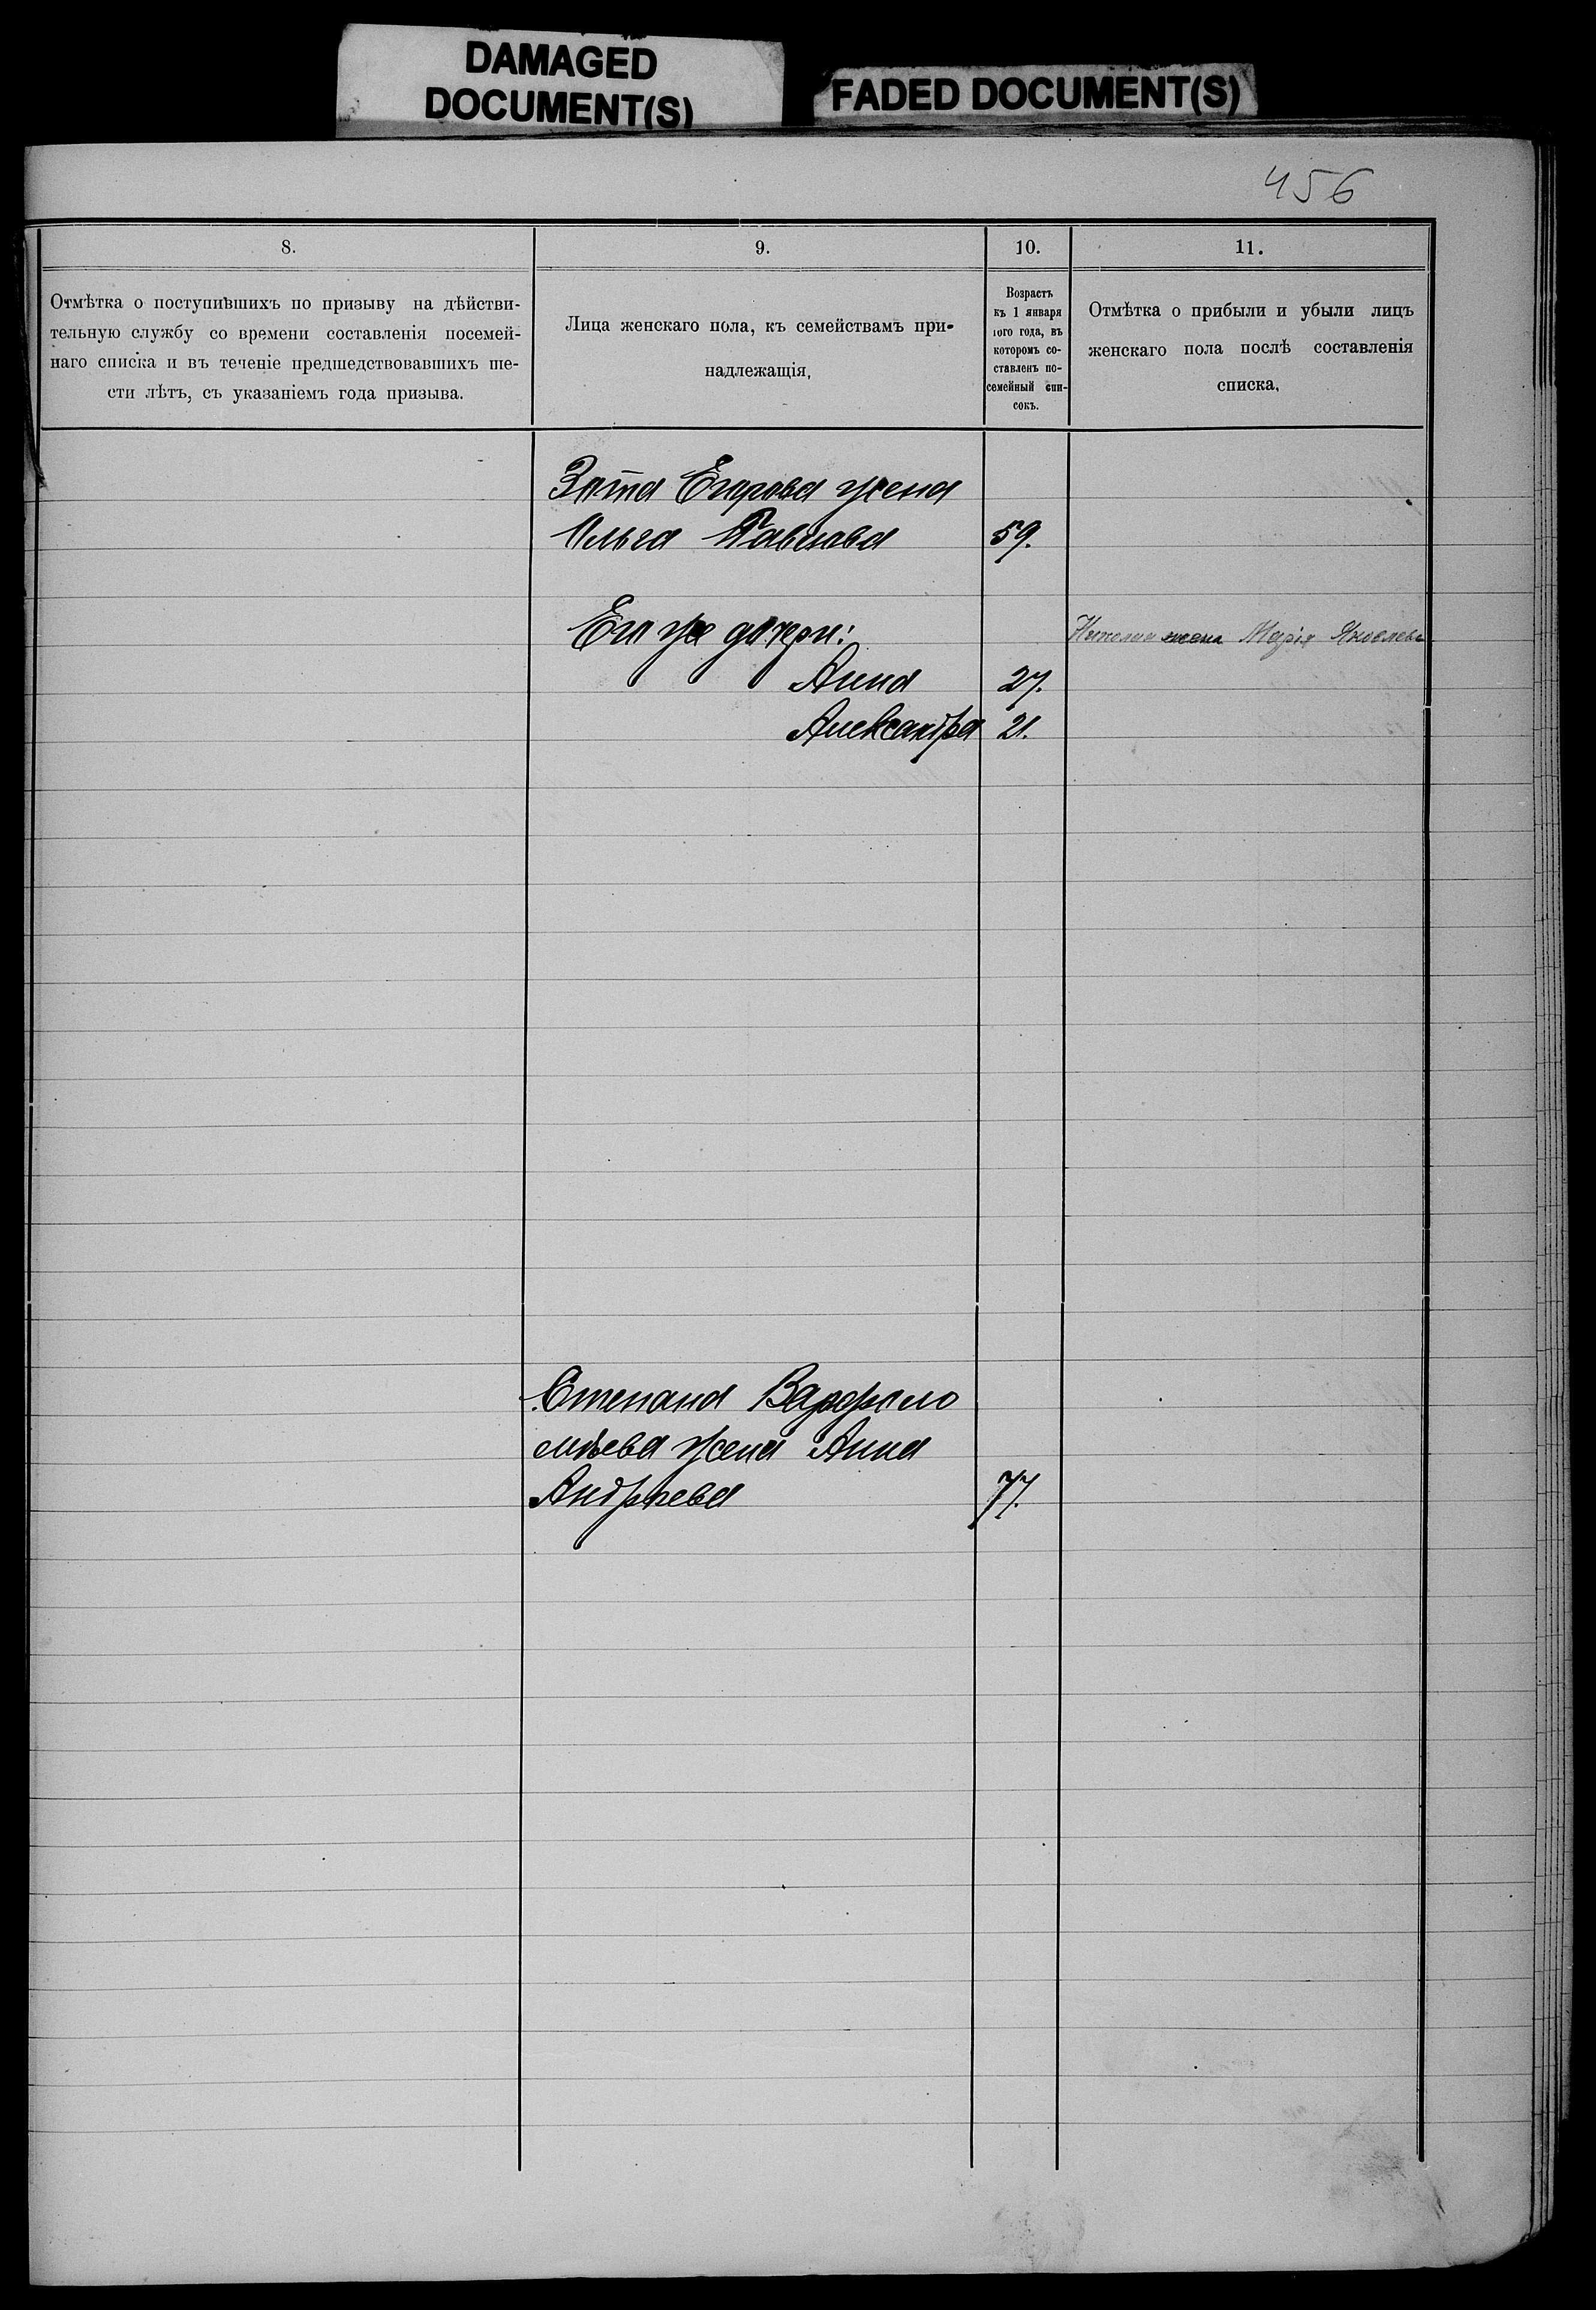 DAMAGED
DOCUMENT(S)
FADED DOCUMENT(S)
456
8.
Отмѣтка о поступившихъ по призыву на дѣйстви-
тельную службу со времени составленія посемей-
наго списка и въ теченіе предшедствовавшихъ ше-
сти лѣтъ, съ указаніемъ года призыва.
9.
Лица женскаго пола, къ семействамъ при-
надлежащія,
10.
Возрастъ
къ 1 января
того года, въ
которомъ со-
ставленъ по-
семейный спи-
сокъ.
11.
Отмѣтка о прибыли и убыли лицъ
женскаго пола послѣ составленія
списка.
Зота Егорова жена
Ольга Павлова 59.
Его же дочери:
жена Марія Яковлева
Анна 27.
Александра 21.
Степана Варфоло
мѣева жена Анна
Андреева 77.